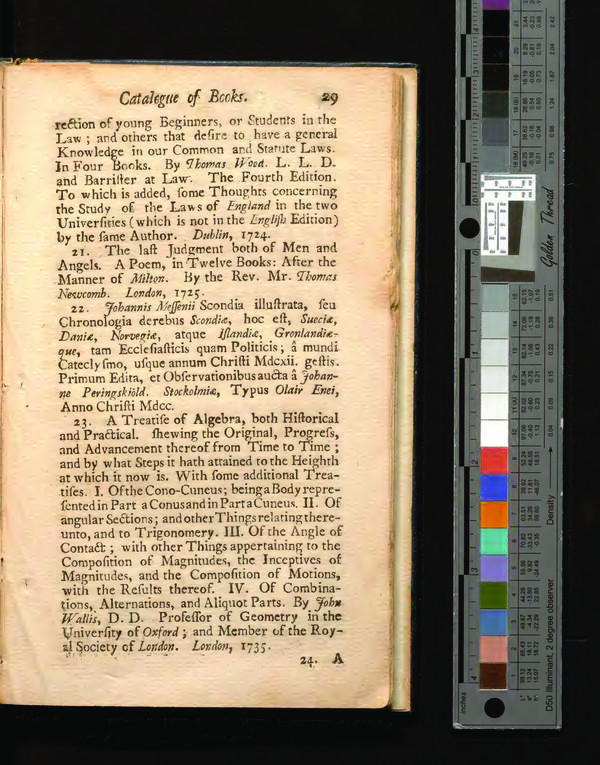 Catalogue of Books. 29
rection of young Beginners, or Students in the
Law ; and others that deſire to have a general
Knowledge in our Common and Statute Laws.
In Four Books. By Thomas Wood. L. L. D.
and Barriſter at Law. The Fourth Edition.
To which is added, ſome Thoughts concerning
the Study of the Laws of England in the two
Univerſities (which is not in the Engliſh Edition)
by the ſame Author. Dublin, 1724.
21. The laſt Judgment both of Men and
Angels. A Poem, in Twelve Books: After the
Manner of Milton. By the Rev. Mr. Thomas
Newcomb. London, 1725.
22. Johannis Meſſenii Scondia illuſtrata, ſeu
Chronologia derebus Scondiæ, hoc eſt, Sueciæ,
Daniæ, Norvegiæ, atque Iſlandiæ, Gronlandiæ-
que, tam Eccleſiaſticis quam Politicis ; â mundi
Cateclyſmo, uſque annum Chriſti Mdcxii. geſtis.
Primum Edita, et Obſervationibus aucta â Johan-
ne Peringskiöld. Stockolmiæ, Typus Olair Enei,
Anno Chriſti Mdcc.
23. A Treatiſe of Algebra, both Hiſtorical
and Practical. ſhewing the Original, Progreſs,
and Advancement thereof from Time to Time ;
and by what Steps it hath attained to the Heighth
at which it now is. With ſome additional Trea-
tiſes. I. Of the Cono-Cuneus; being a Body repre-
ſented in Part a Conus and in Part a Cuneus. II. Of
angular Sections ; and other Things relating there-
unto, and to Trigonomery. III. Of the Angle of
Contact ; with other Things appertaining to the
Compoſition of Magnitudes, the Inceptives of
Magnitudes, and the Compoſition of Motions,
with the Reſults thereof. IV. Of Combina-
tions, Alternations, and Aliquot Parts. By John
Wallis, D. D. Profeſſor of Geometry in the
Univerſity of Oxford ; and Member of the Roy-
al Society of London. London, 1735.
24. A
Golden Thread
Density
D50 Illuminant, 2 degree observer
inches